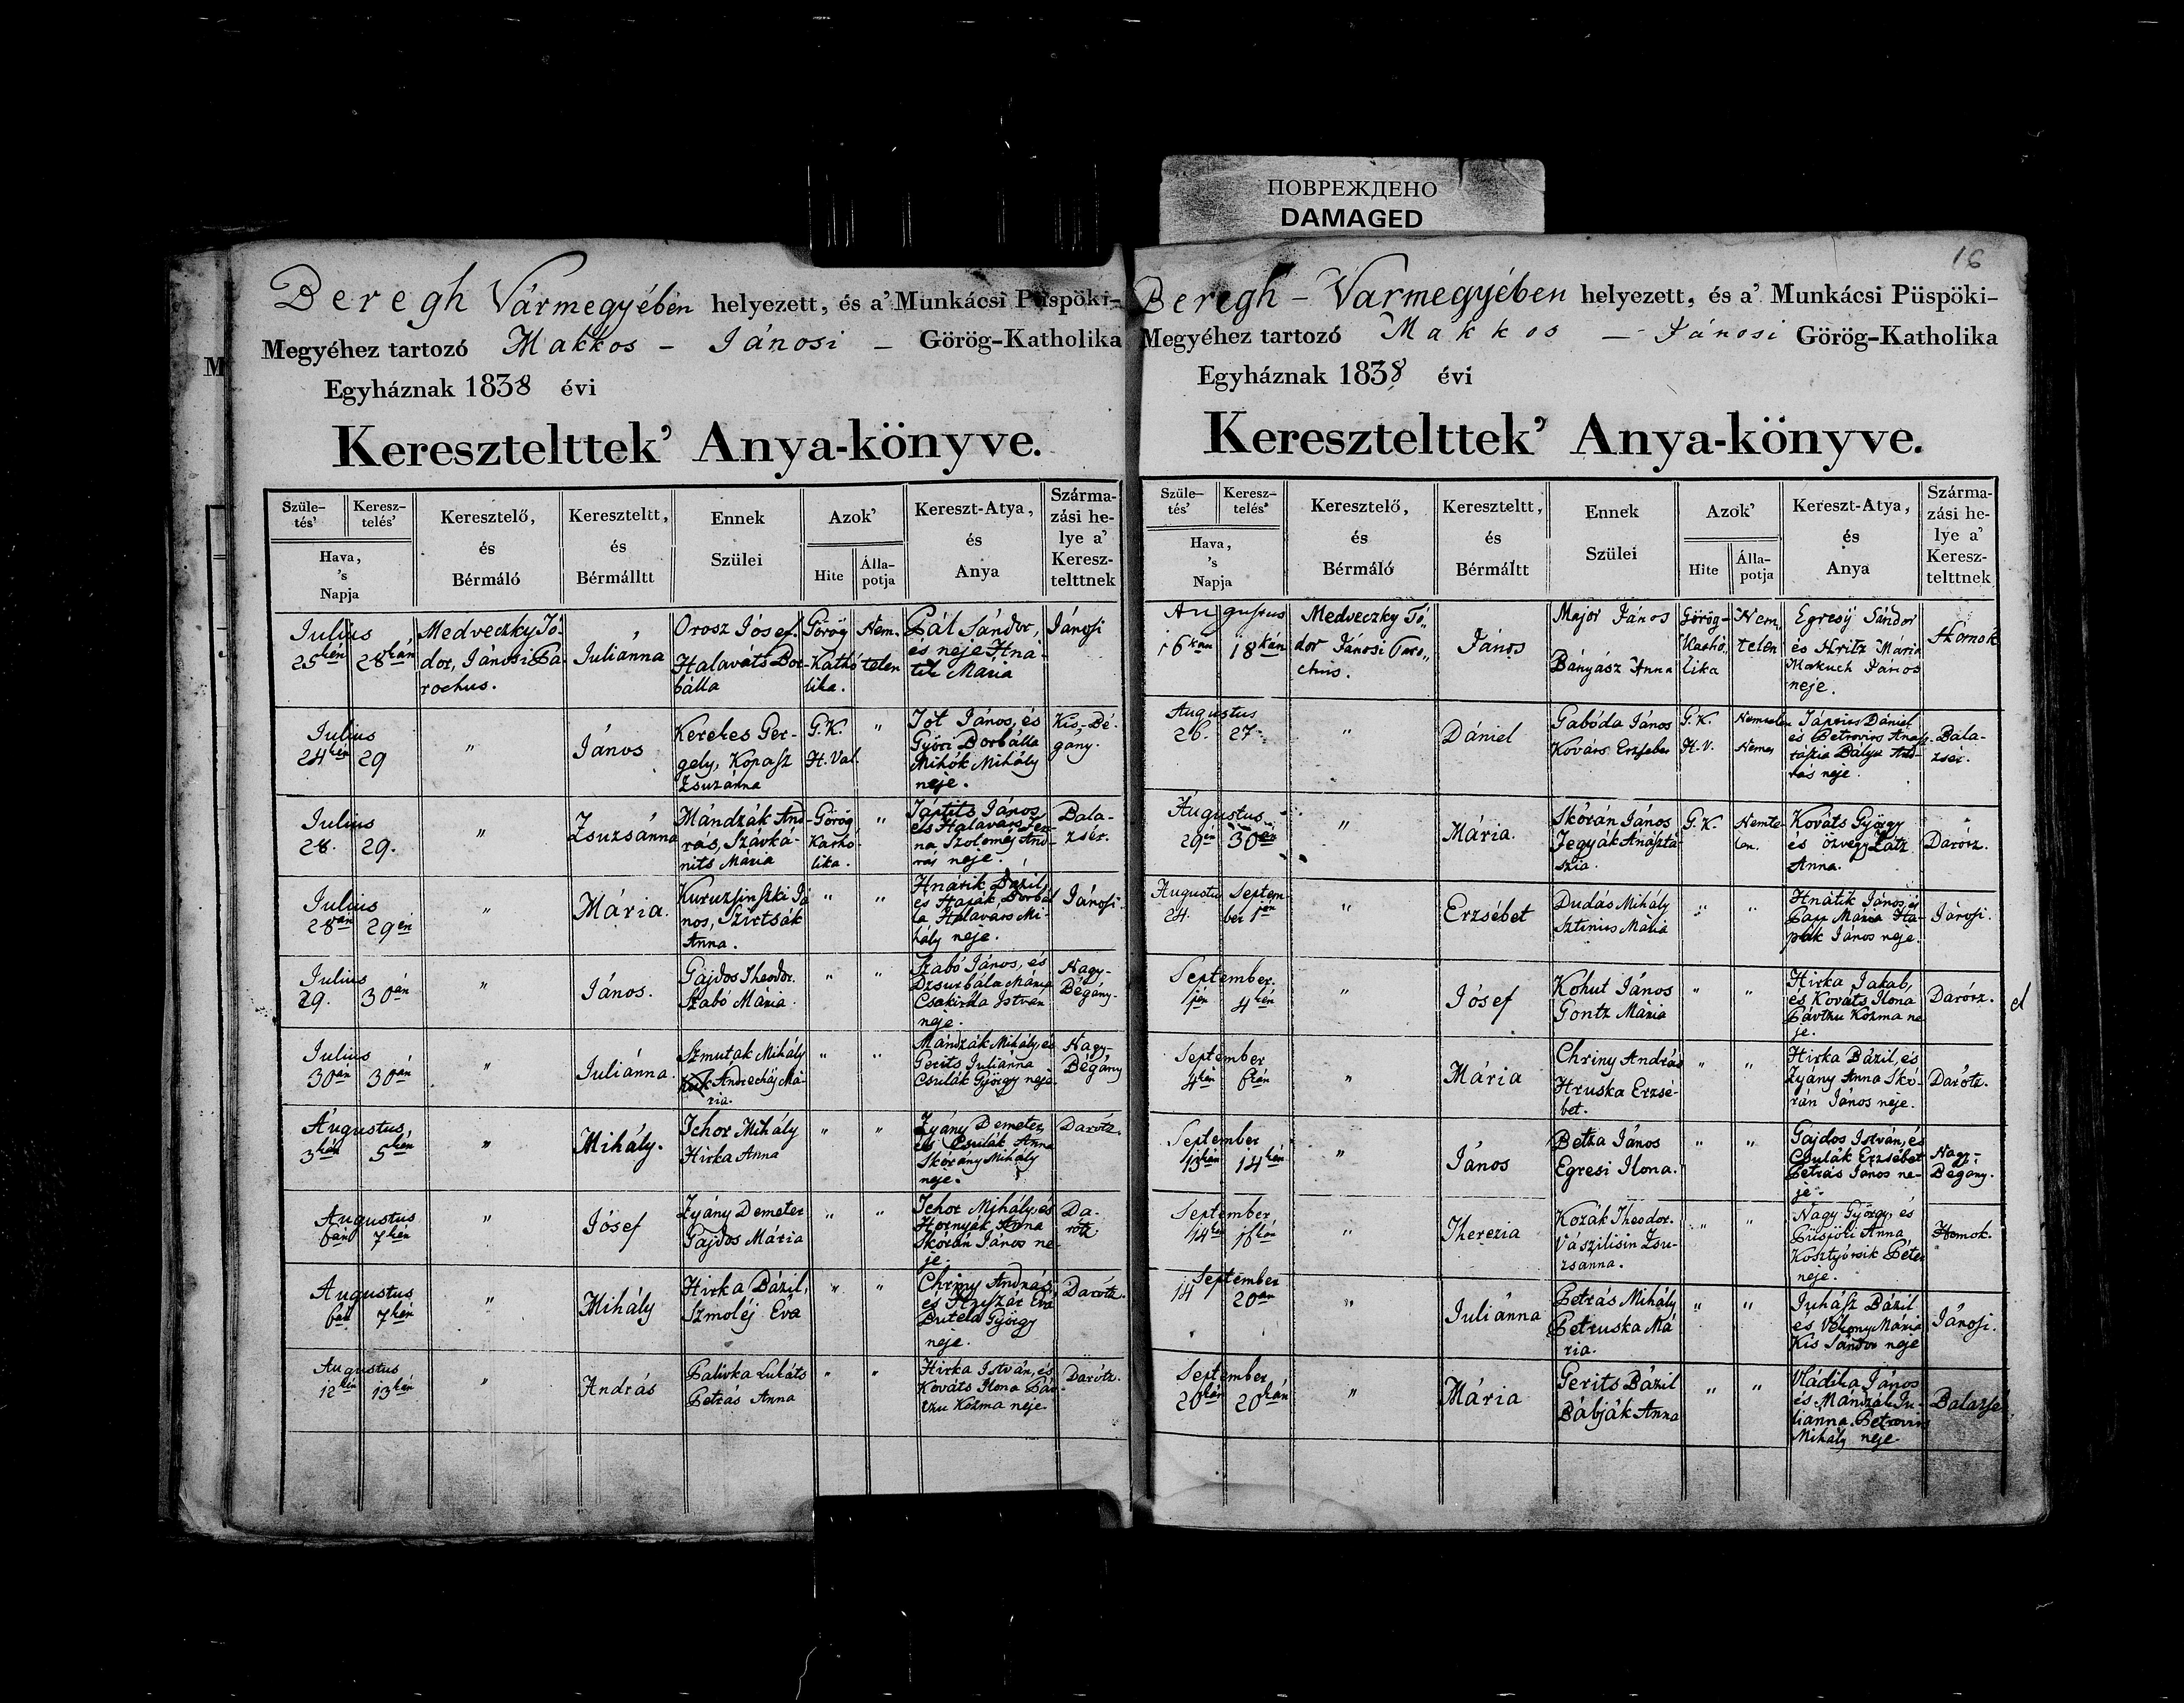 ПОВРЕЖДЕНО
DAMAGED
Beregh Vármegyében helyezett, és a' Munkácsi Püspöki-
Megyéhez tartozó Makkos - Jánosi - Görög-Katholika
Egyháznak 1838 évi
Keresztelttek' Anya-könyve.
Szüle-tés' Keresz-telés' Hava, 's Napja
Keresztelő, és Bérmáló
Kereszteltt, és Bérmálltt
Ennek Szülei
Azok' Hite Álla-potja
Kereszt-Atya, és Anya
Származási he-lye a' Keresz-telttnek
Julius 25kén 28kán Medveczky Tódor, Jánosi Parochus. Julianna Orosz Jósef. Halaváts Borbálla Görög Katholika. Nemtelen Pál Sándor, és neje Hnatik Mária Jánosi
Julius 24kén 29 " János Kerekes Gergely, Kopasz Zsuzánna G.K. H.Val. " Tót János, és Győri Borbálla Mihók Mihály neje. Kis-Bégány.
Julius 28. 29. " Zsuzsánna Mándzák András, Mária Görög Katholika. " János András neje. Balazsér.
Julius 28án 29én " Mária. János, Szirtsák Anna. " " Hnátik Bazil, és Borbála Mihály neje. Jánosi.
Julius 29. 30án " János. Gajdos Theodor. Szabó Mária. " " Szabó János, és Mária István neje. Nagy-Bégány.
Julius 30án 30án " Juliánna. Szmutak Mihály Mária. " " Mándzák Mihály, és Gerits Juliánna Csulák György neje. Nagy-Bégány
Augustus 3kán 5kén " Mihály. Tchor Mihály Hirka Anna " " Zyány Demeter, és Csulák Anna Skórány Mihály neje. Darótz.
Augustus 6án 7kén " Jósef Zyány Demeter Gajdos Mária " " Tchor Mihály, és Hornyák Anna Skórán János neje. Darótz
Augustus 6án 7kén " Mihály Hirka Bázil, Szmoléj Éva " " Chriny András, és Huszár Éva György neje. Darótz.
Augustus 12kén 13kán " András Palivka Lukáts Petrás Anna " " Hirka István, és Kováts Ilona Kozma neje. Darótz.
16
Beregh - Varmegyében helyezett, és a' Munkácsi Püspöki-
Megyéhez tartozó Makkos - Jánosi Görög-Katholika
Egyháznak 1838 évi
Keresztelttek' Anya-könyve.
Szüle-tés' Keresz-telés' Hava, 's Napja
Keresztelő, és Bérmáló
Kereszteltt, és Bérmáltt
Ennek Szülei
Azok' Hite Álla-potja
Kereszt-Atya, és Anya
Származási he-lye a' Keresz-telttnek
Augustus 16kán 18kán Medveczky Tódor Jánosi Parochus. János Major János Bányász Anna Görög-Katholika Nemtelen Egresÿ Sándor és Hritz Mária Makuch János neje.
Augustus 26. 27. " Dániel Gabóda János Kováts Erzsebet G.K. H.V. Nemtelen Nemes Dániel, András neje. Balazsér.
Augustus 29én 30án " Mária. Skórán János G.K. Nemtelen. Kováts György és özvegy Anna. Darótz.
Augustus 24. September 1jén " Erzsébet Dudás Mihály Mária " " Hnátik János, és Papp Mária János neje. Jánosi.
September. 1jén 4kén " Jósef Kohut János Gontz Mária " " Hirka Jakab, és Kováts Ilona Kozma neje. Darótz.
September 4kén 6kán " Mária Chriny András Hruska Erzsébet. " " Hirka Bázil, és Zyány Anna Skórán János neje. Darótz.
September 13kán 14kén " János Betza János Egresi Ilona. " " Gajdos István, és Csulák Erzsébet Petrás János neje. Nagy-Bégány.
September 14kén 16kán " Therezia Kozák Theodor. Vászilisin Zsuzsanna. " " Nagy György, és Püspöki Anna Péter neje. Homok.
September 14 20án " Juliánna Petrás Mihály Petruska Mária. " " Juhász Bázil és Vékony Mária Kis Sándor neje Jánosi.
September 20kán 20kán " Mária Gerits Bázil Bábják Anna " " Vládika János és Mándzák Julianna Mihály neje.